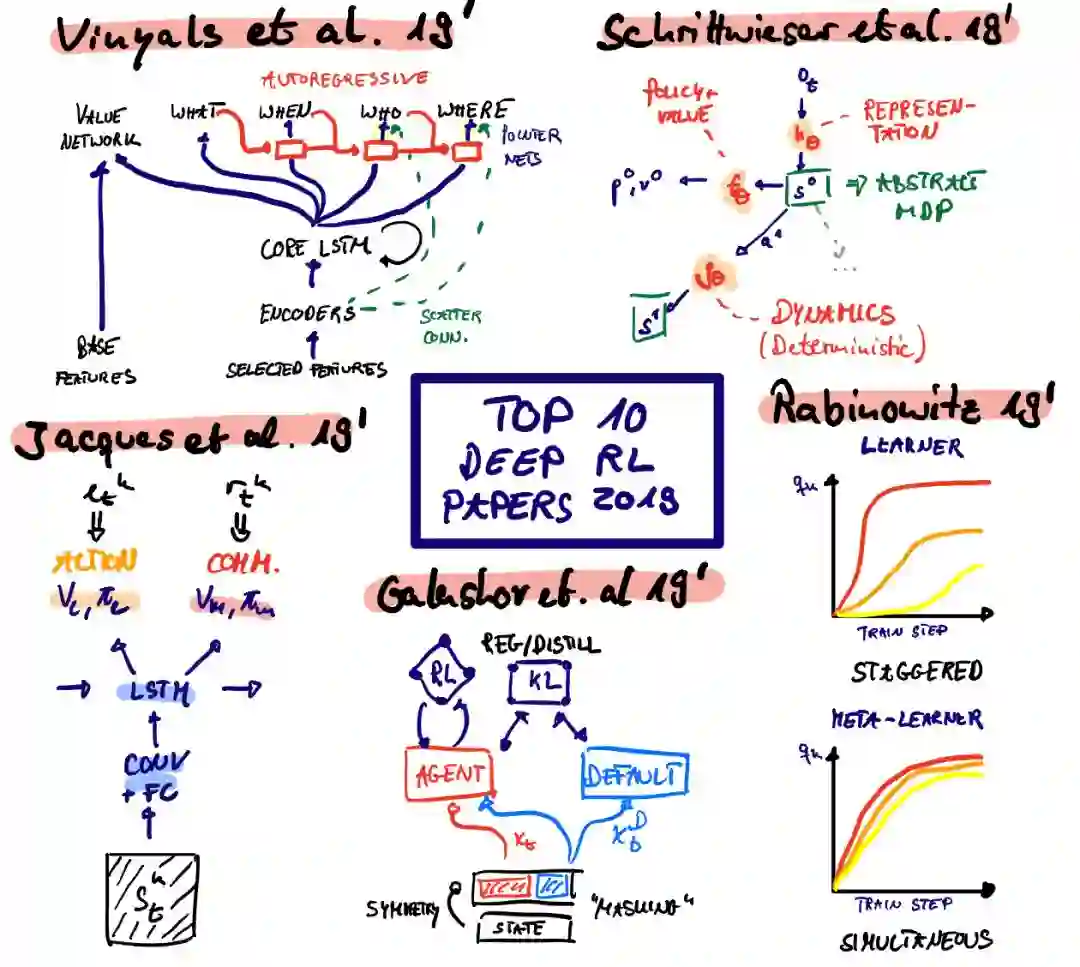 Vinyals et al. 19'
AUTOREGRESSIVE
VALUE NETWORK
WHAT
WHEN
WHO
WHERE
POINTER NETS
CORE LSTM
ENCODERS
SCATTER CONN.
BASE FEATURES
SELECTED FEATURES
Schrittwieser et al. 19'
POLICY + VALUE
o_t
h_θ
REPRESEN-
TATION
p⁰, v⁰
f_θ
s⁰
⇒ ABSTRACT
MDP
a¹
...
g_θ
s¹
DYNAMICS
(Deterministic)
TOP 10
DEEP RL
PAPERS 2019
Jacques et al. 19'
e_t^k
r_t^k
ACTION
COMM.
V_e, π_e
V_m, π_m
LSTM
CONV
+ FC
S_t^k
Galashov et. al 19'
REG/DISTILL
RL
KL
AGENT
DEFAULT
x_t
x_t^D
SYMMETRY
"MASKING"
STATE
Rabinowitz 19'
LEARNER
q_k
TRAIN STEP
STAGGERED
META-LEARNER
q_k
TRAIN STEP
SIMULTANEOUS